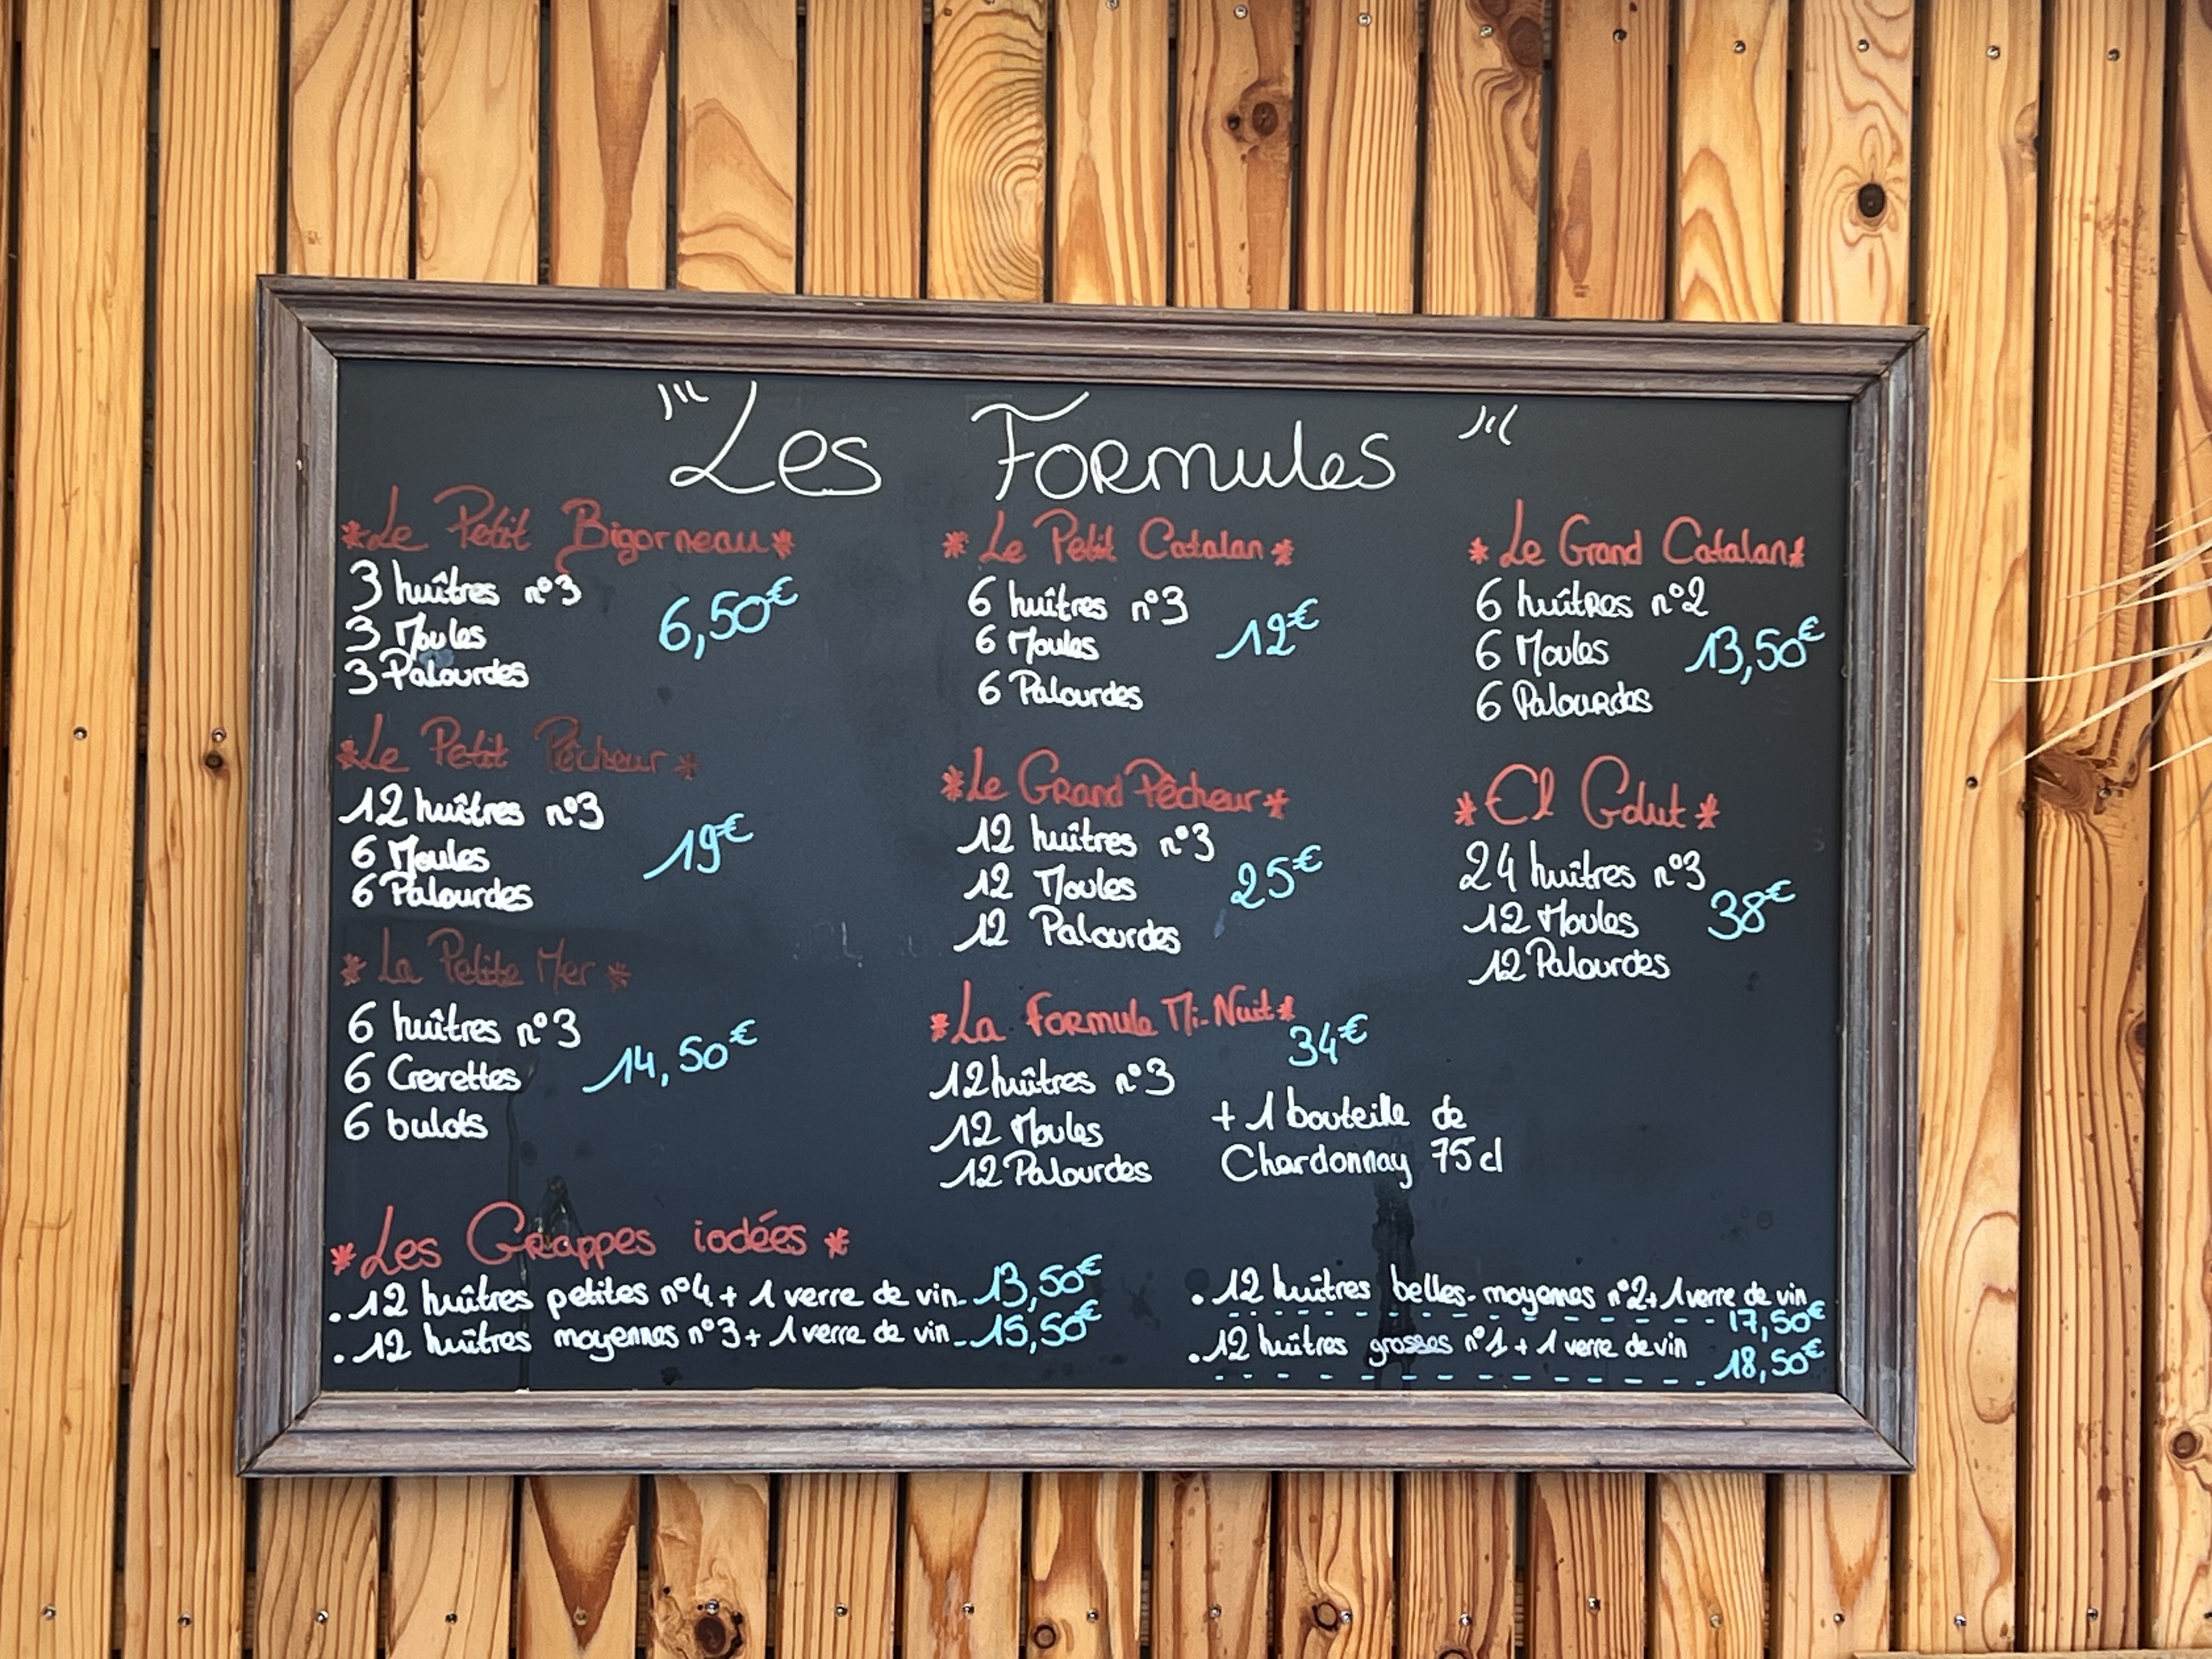 Les Formules
*Le Petit Bigorneau*
3 huîtres n°3
3 Moules
3 Palourdes
6,50€
*Le Petit Catalan*
6 huîtres n°3
6 Moules
6 Palourdes
12€
*Le Grand Catalan*
6 huîtres n°2
6 Moules
6 Palourdes
13,50€
*Le Petit Pêcheur*
12 huîtres n°3
6 Moules
6 Palourdes
19€
*Le Grand Pêcheur*
12 huîtres n°3
12 Moules
12 Palourdes
25€
*El Golut*
24 huîtres n°3
12 Moules
12 Palourdes
38€
*La Petite Mer*
6 huîtres n°3
6 Crevettes
6 bulots
14,50€
*La Formule Mi-Nuit*
34€
12 huîtres n°3
12 Moules
12 Palourdes
+ 1 bouteille de
Chardonnay 75cl
*Les Grappes iodées*
. 12 huîtres petites n°4 + 1 verre de vin 13,50€
. 12 huîtres moyennes n°3 + 1 verre de vin 15,50€
. 12 huîtres belles-moyennes n°2 + 1 verre de vin
17,50€
. 12 huîtres grosses n°1 + 1 verre de vin
18,50€